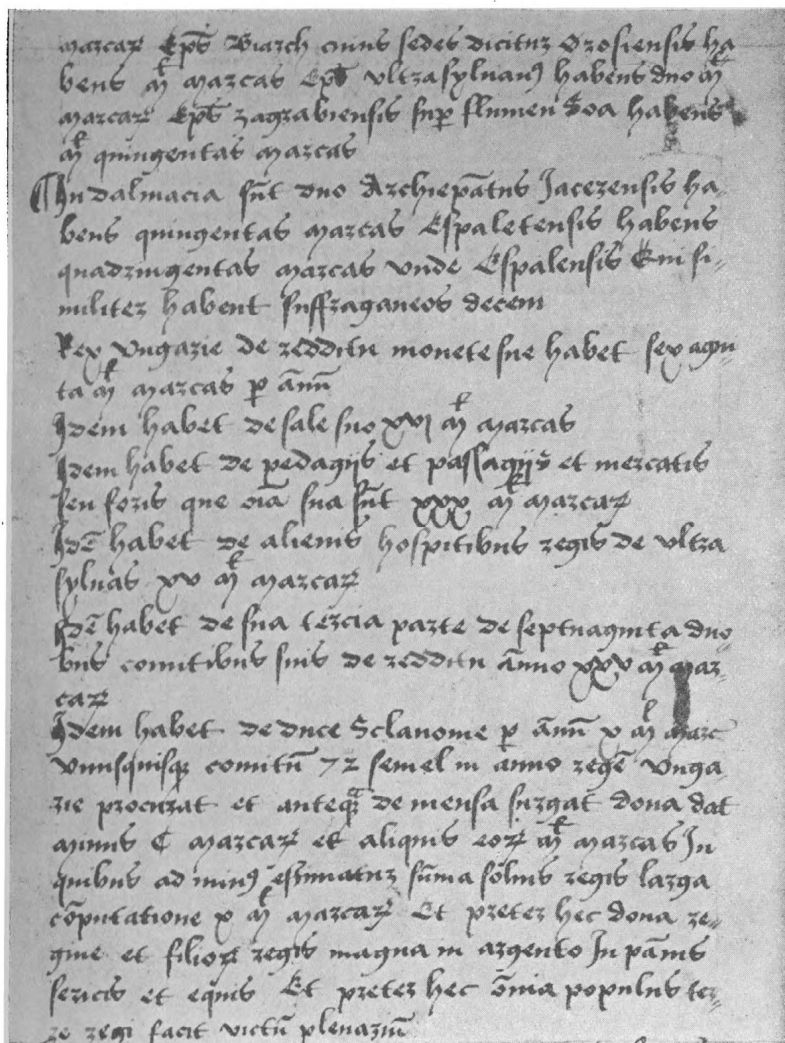 marcar Eps Biarch cuius sedes dicitur Orosiensis ha
bens mł marcas Eps ultrasyluanɔ habens duo mł
marcar Eps zagrabiensis sup flumen Soa habens
mł quingentas marcas
In dalmacia sūt duo Archiepātus Jacerensis ha-
bens quingentas marcas Espaletensis habens
quadringentas marcas unde Espalensis & ui si-
militer habent suffraganeos decem
Rex Ungarie de redditu monete sue habet sexagin-
ta mł marcas p annū
Idem habet de sale suo xvi mł marcas
Idem habet de pedagijs et passagijs et mercatis
seu foris que oīa sua sūt xxx mł marcar
Idē habet de alienis hospitibus regis de ultra
syluas xv mł marcar
Idē habet de sua tercia parte de septuaginta duo-
bus comitibus suis de redditu anno xxv mł mar-
car
Idem habet de duce Sclauome p annū x mł marc
Unusquisqꝫ comitū 72 semel in anno regē Unga-
rie procurat et anteqᵃ de mensa surgat dona dat
minus C marcar et aliquis eor mł marcas In
quibus ad minɔ estimatur sūma solius regis larga
cōputatione x mł marcar Et preter hec dona re-
gine et filior regis magna in argento In pānis
sericis et equis Et preter hec ōnia populus ter-
re regi facit victū plenariū